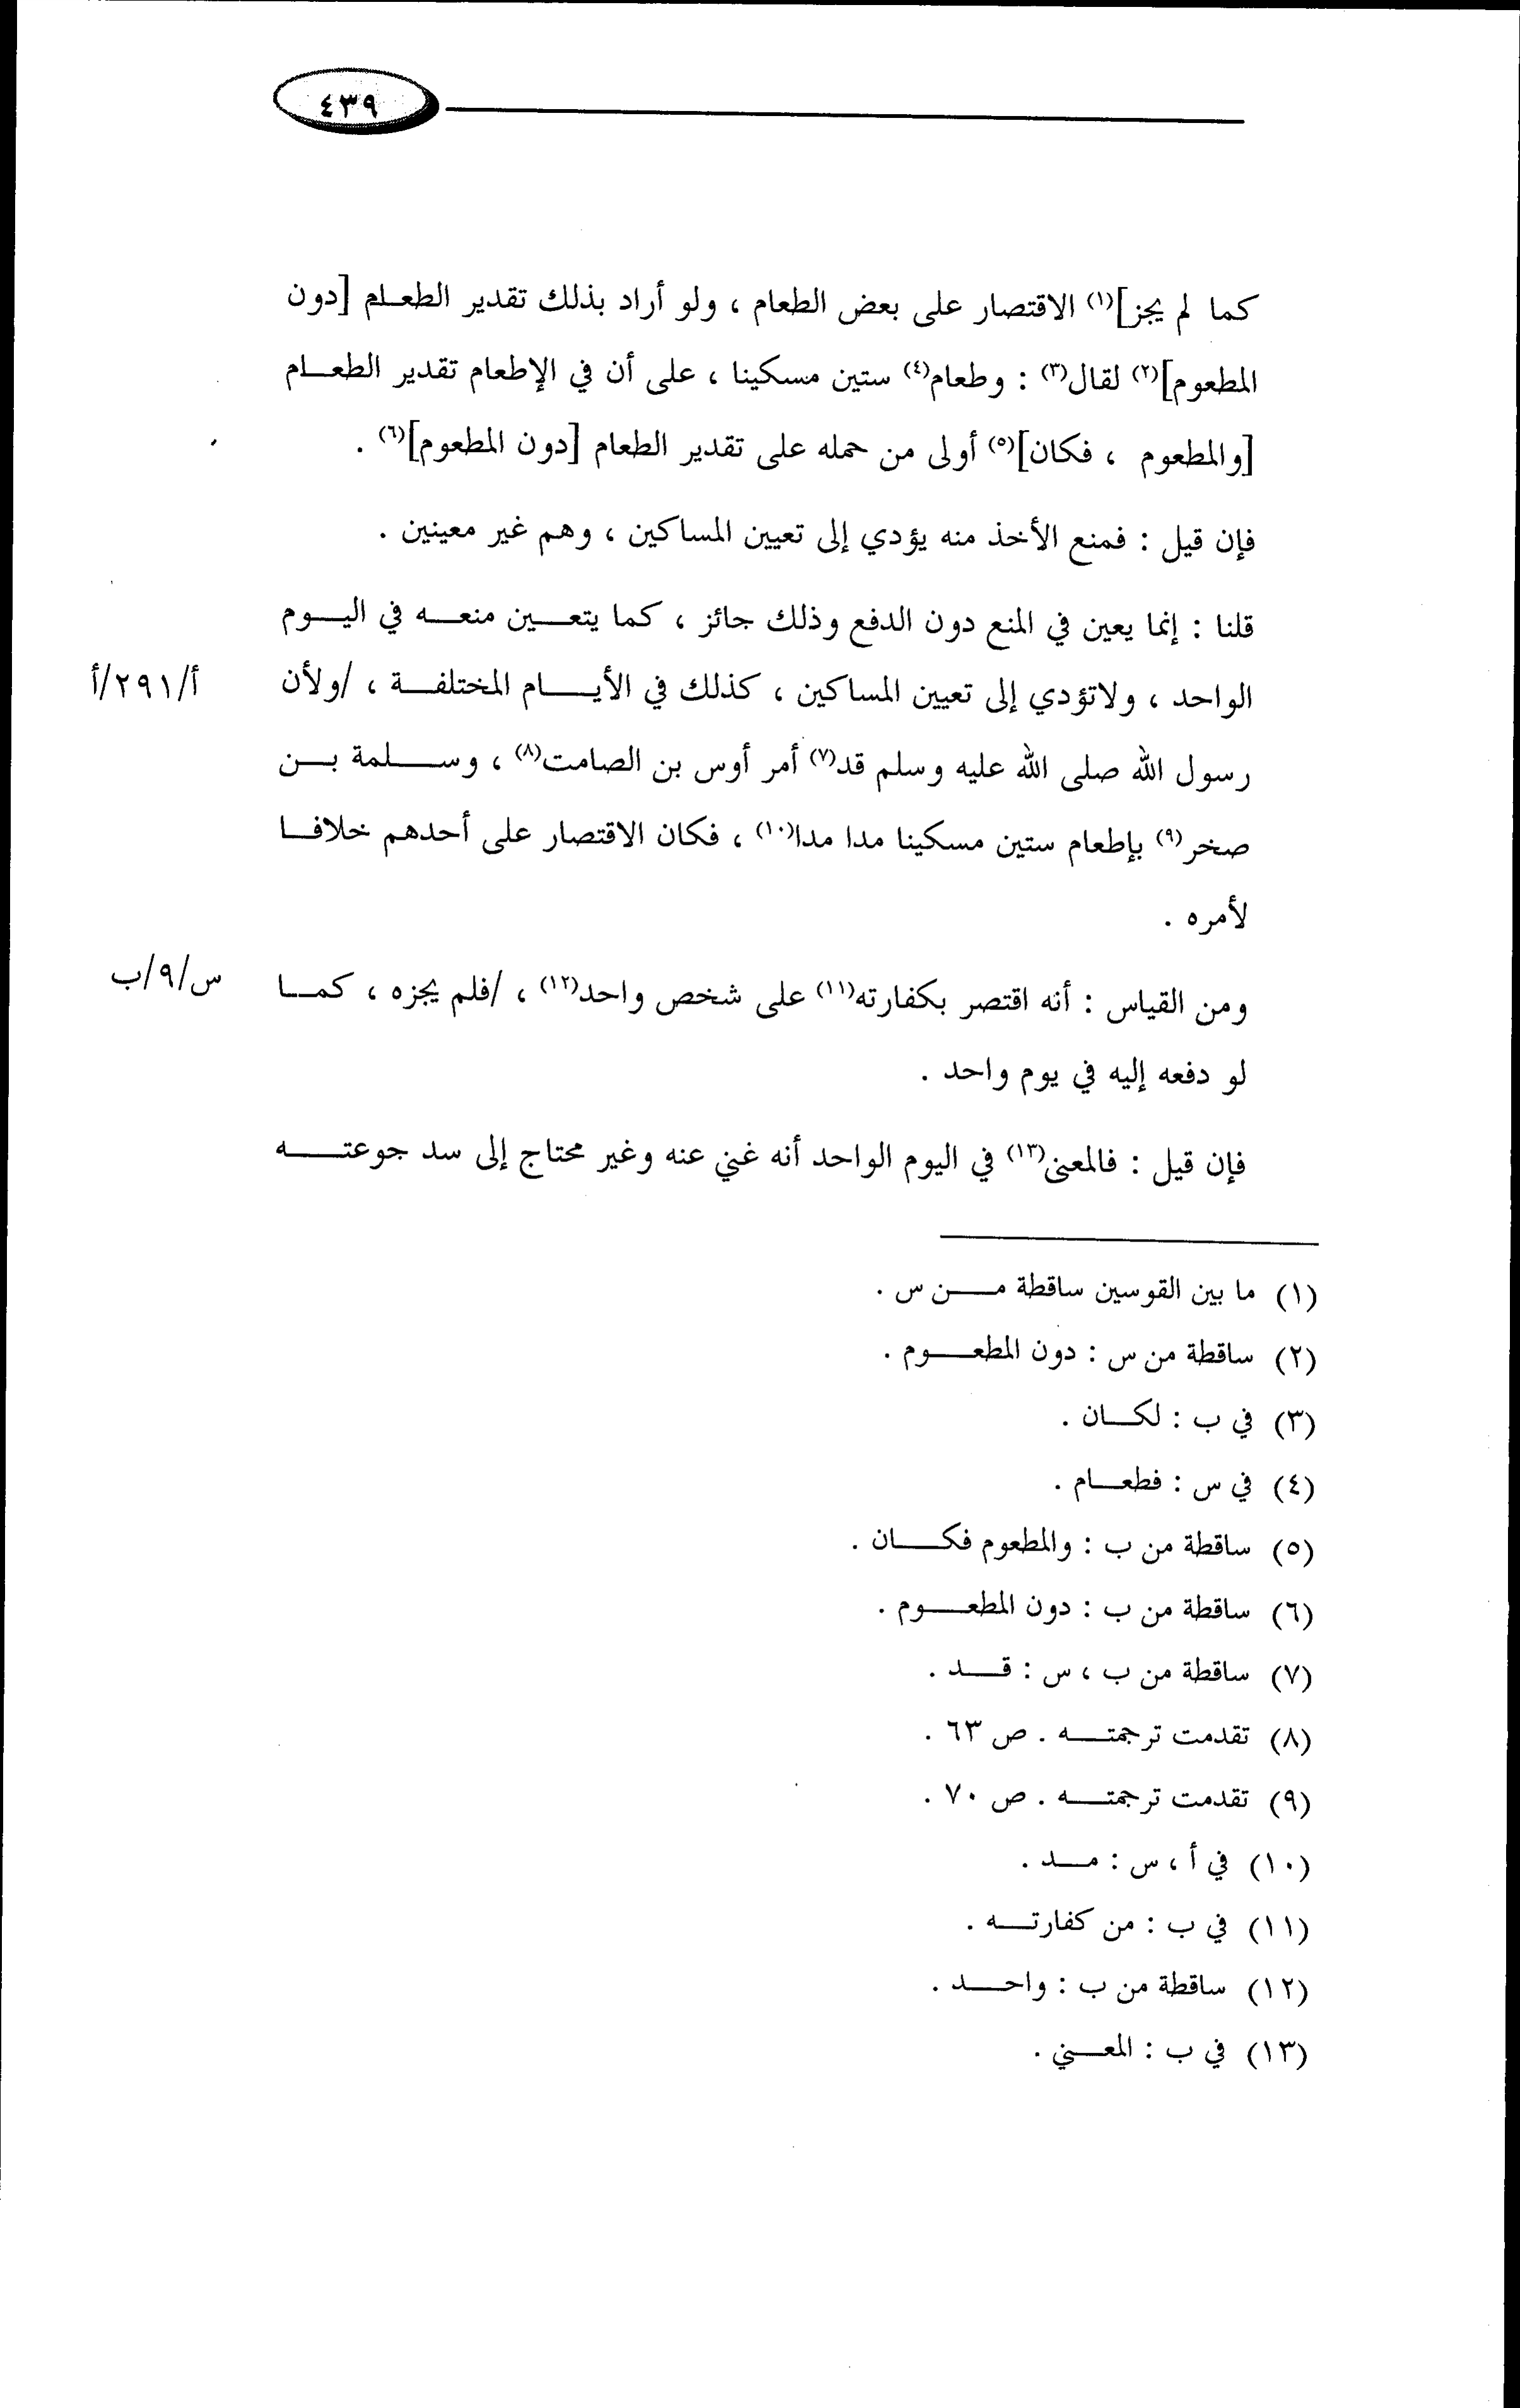 ٤٣٩
كما لم يجز](١) الاقتصار على بعض الطعام ، ولو أراد بذلك تقدير الطعام [دون
المطعوم](٢) لقال(٣) : وطعام(٤) ستين مسكينا ، على أن في الإطعام تقدير الطعام
[والمطعوم ، فكان](٥) أولى من حمله على تقدير الطعام [دون المطعوم](٦) .
فإن قيل : فمنع الأخذ منه يؤدي إلى تعيين المساكين ، وهم غير معينين .
قلنا : إنما يعين في المنع دون الدفع وذلك جائز ، كما يتعين منعه في اليوم
الواحد ، ولاتؤدي إلى تعيين المساكين ، كذلك في الأيام المختلفة ، /ولأن
أ/٢٩١/أ
رسول الله صلى الله عليه وسلم قد(٧) أمر أوس بن الصامت(٨) ، وسلمة بن
صخر(٩) بإطعام ستين مسكينا مدا مدا(١٠) ، فكان الاقتصار على أحدهم خلافا
لأمره .
ومن القياس : أنه اقتصر بكفارته(١١) على شخص واحد(١٢) ، /فلم يجزه ، كما
س/٩/ب
لو دفعه إليه في يوم واحد .
فإن قيل : فالمعنى(١٣) في اليوم الواحد أنه غني عنه وغير محتاج إلى سد جوعته
(١) ما بين القوسين ساقطة من س .
(٢) ساقطة من س : دون المطعوم .
(٣) في ب : لكان .
(٤) في س : فطعام .
(٥) ساقطة من ب : والمطعوم فكان .
(٦) ساقطة من ب : دون المطعوم .
(٧) ساقطة من ب ، س : قد .
(٨) تقدمت ترجمته . ص ٦٣ .
(٩) تقدمت ترجمته . ص ٧٠ .
(١٠) في أ ، س : مد .
(١١) في ب : من كفارته .
(١٢) ساقطة من ب : واحد .
(١٣) في ب : المعني .